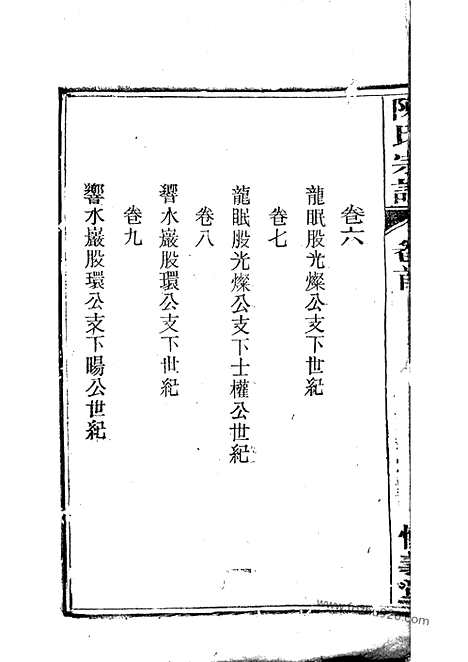 陳氏宗譜
卷首
卷六
龍眠股光燦公支下世紀
卷七
龍眠股光燦公支下士權公世紀
卷八
響水巖股環公支下世紀
卷九
響水巖股環公支下暘公世紀